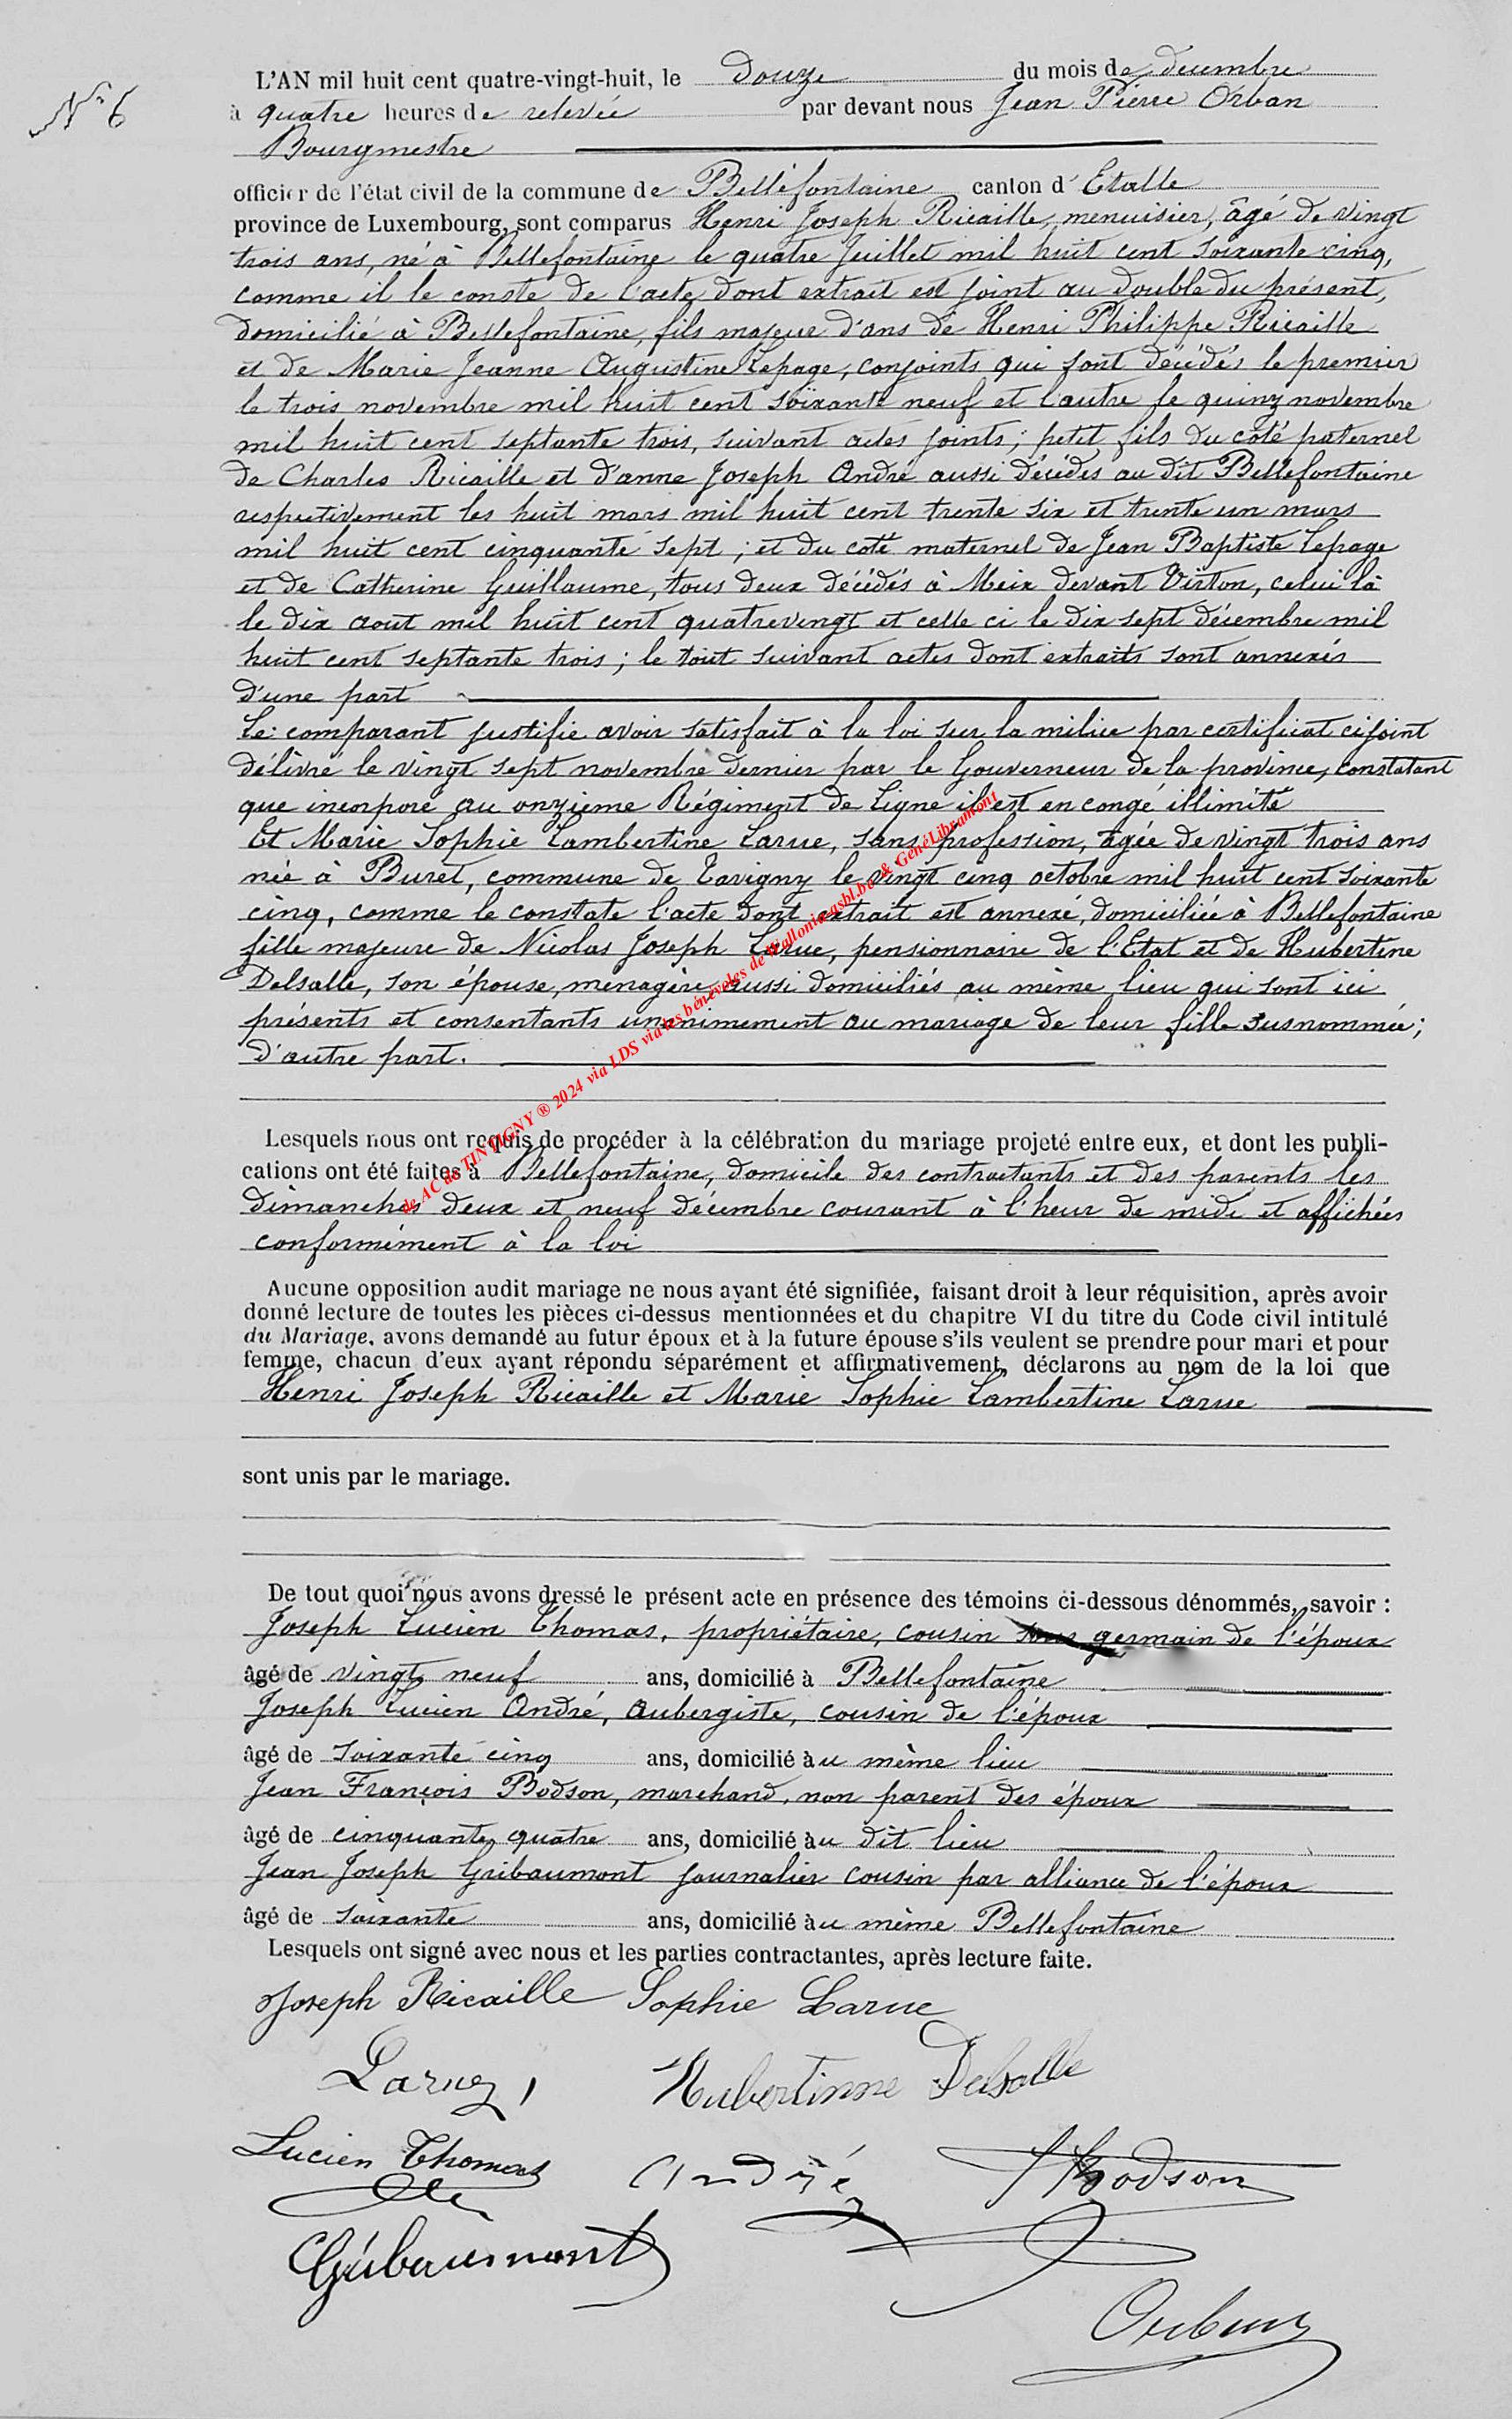 N° 6
L'AN mil huit cent quatre-vingt-huit, le douze du mois de décembre
à quatre heures de relevée par devant nous Jean Pierre Orban
Bourgmestre
officier de l'état civil de la commune de Bellefontaine canton d'Etalle
province de Luxembourg, sont comparus Henri Joseph Ricaille, menuisier, âgé de vingt
trois ans, né à Bellefontaine le quatre Juillet mil huit cent soixante cinq,
comme il le conste de l'acte dont extrait est joint au double du présent,
domicilié à Bellefontaine, fils majeur d'ans de Henri Philippe Ricaille
et de Marie Jeanne Augustine Lepage, conjoints qui sont décédés le premier
le trois novembre mil huit cent soixante neuf et l'autre le quinz novembre
mil huit cent septante trois, suivant actes joints; petit fils du coté paternel
de Charles Ricaille et d'anne Joseph André aussi décédés au dit Bellefontaine
respectivement les huit mars mil huit cent trente six et trente un mars
mil huit cent cinquante sept; et du coté maternel de Jean Baptiste Lepage
et de Catherine Guillaume, tous deux décédés à Meix devant Virton, celui là
le dix aout mil huit cent quatrevingt et celle ci le dix sept décembre mil
huit cent septante trois; le tout suivant actes dont extraits sont annexés
d'une part
Le comparant justifie avoir satisfait à la loi sur la milice par certificat cijoint
délivré le vingt sept novembre dernier par le Gouverneur de la province, constatant
que incorporé au onzième Régiment de Ligne il est en congé illimité
Et Marie Sophie Lambertine Larue, sans profession, âgée de vingt trois ans
née à Buret, commune de Tavigny le vingt cinq octobre mil huit cent soixante
cinq, comme le constate l'acte dont extrait est annexé, domiciliée à Bellefontaine
fille majeure de Nicolas Joseph Larue, pensionnaire de l'Etat et de Hubertine
Delsalle, son épouse, ménagère aussi domiciliés au même lieu qui sont ici
présents et consentants unanimement au mariage de leur fille susnommée;
d'autre part.
de AC de TINTIGNY ® 2024 via LDS via les bénévoles de Wallonia-asbl.be & GénéLibramont
Lesquels nous ont requis de procéder à la célébration du mariage projeté entre eux, et dont les publi-
cations ont été faites à Bellefontaine, domicile des contractants et des parents les
dimanches deux et neuf décembre courant à l'heur de midi et affichées
conformément à la loi
Aucune opposition audit mariage ne nous ayant été signifiée, faisant droit à leur réquisition, après avoir
donné lecture de toutes les pièces ci-dessus mentionnées et du chapitre VI du titre du Code civil intitulé
du Mariage, avons demandé au futur époux et à la future épouse s'ils veulent se prendre pour mari et pour
femme, chacun d'eux ayant répondu séparément et affirmativement, déclarons au nom de la loi que
Henri Joseph Ricaille et Marie Sophie Lambertine Larue
sont unis par le mariage.
De tout quoi nous avons dressé le présent acte en présence des témoins ci-dessous dénommés, savoir :
Joseph Lucien Thomas, propriétaire, cousin germain de l'époux
âgé de vingt neuf ans, domicilié à Bellefontaine
Joseph Lucien André, aubergiste, cousin de l'époux
âgé de soixante cinq ans, domicilié àu même lieu
Jean François Bodson, marchand, non parent des époux
âgé de cinquante quatre ans, domicilié àu dit lieu
Jean Joseph Gribaumont journalier cousin par alliance de l'époux
âgé de soixante ans, domicilié àu même Bellefontaine
Lesquels ont signé avec nous et les parties contractantes, après lecture faite.
Joseph Ricaille Sophie Larue
Larue Hubertinne Delsalle
Lucien Thomas André Bodson
Gribaumont
Orban